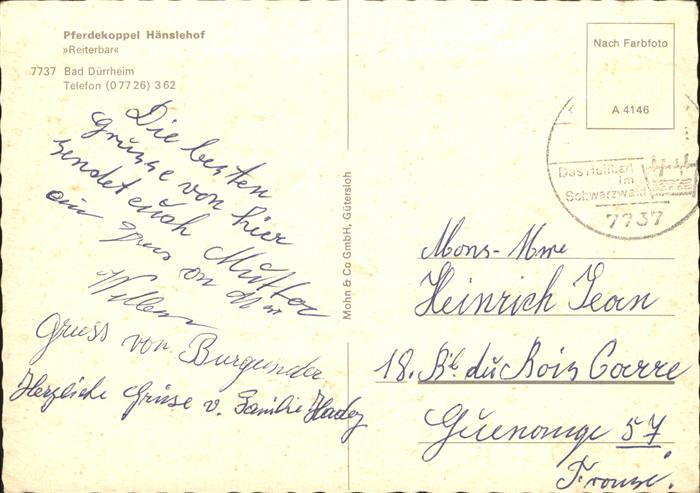 Pferdekoppel Hänslehof
»Reiterbar«
7737 Bad Dürrheim
Telefon (0 77 26) 3 62
Die besten
Grüsse von hier
sendet euch Mutter
ein Gruss an
Gruss von Burgunder
Herzliche Grüsse v. Familie
Mohn & Co GmbH, Gütersloh
Nach Farbfoto
A 4146
Das Heilbad
im
Schwarzwald
7737
Mons- Mme
Heinrich Jean
18. du Bois Carré
Guenange 57